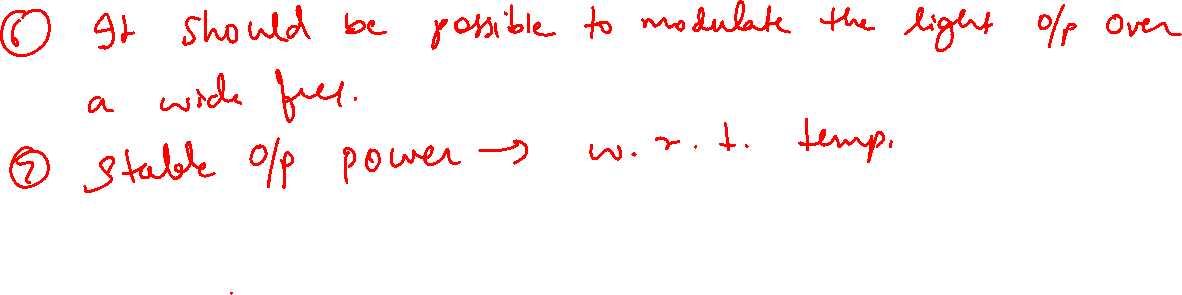 ⑥ It should be possible to modulate the light o/p over
a wide freq.
⑦ Stable o/p power → w.r.t. temp.